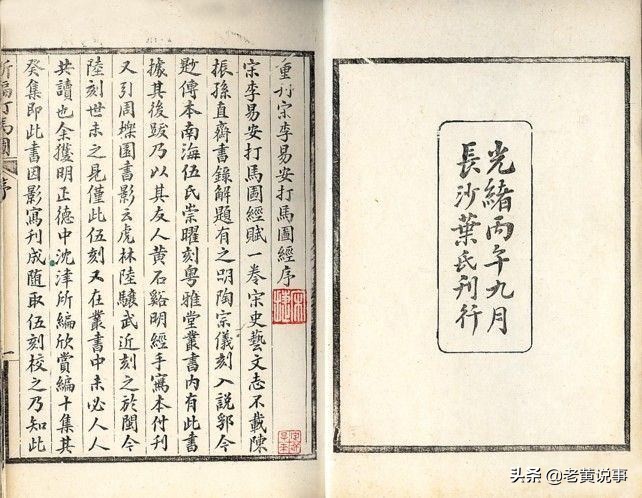 光緒丙午九月
長沙葉氏刊行
重刊宋李易安打馬圖經序
宋李易安打馬圖經賦一卷宋史藝文志不載陳
振孫直齋書錄解題有之明陶宗儀刻入說郛今
尠傳本南海伍氏崇曜刻粵雅堂叢書內有此書
據其後跋乃以其友人黃石谿明經手寫本付刊
又引周櫟園書影云虎林陸驤武近刻之於閩今
陸刻世未之見僅此伍刻又在叢書中未必人人
共讀也余獲明正德中沈津所編欣賞編十集其
癸集即此書因影寫刊成隨取伍刻校之乃知此
打馬圖 序 一
头条 @老黄说事